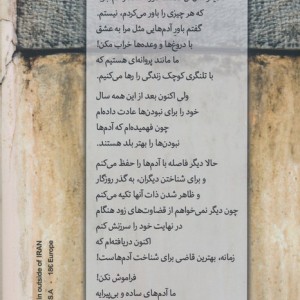 که هر چیزی را باور می‌کردم، نیستم.
گفتم باورِ آدم‌هایی مثل مرا به عشق
با دروغ‌ها و وعده‌ها خراب مکن!
ما مانند پروانه‌ای هستیم که
با تلنگری کوچک زندگی را رها می‌کنیم.
ولی اکنون بعد از این همه سال
خود را برای نبودن‌ها عادت داده‌ام
چون فهمیده‌ام که آدم‌ها
نبودن‌ها را بهتر بلد هستند.
حالا دیگر فاصله با آدم‌ها را حفظ می‌کنم
و برای شناختن دیگران، به گذر روزگار
و ظاهر شدن ذات آنها تکیه می‌کنم
چون دیگر نمی‌خواهم از قضاوت‌های زود هنگام
در نهایت خود را سرزنش کنم
اکنون دریافته‌ام که
زمانه، بهترین قاضی برای شناخت آدم‌هاست!
فراموش نکن!
ما آدم‌های ساده و بی‌پیرایه
In outside of IRAN
S.A - 18€ Europe